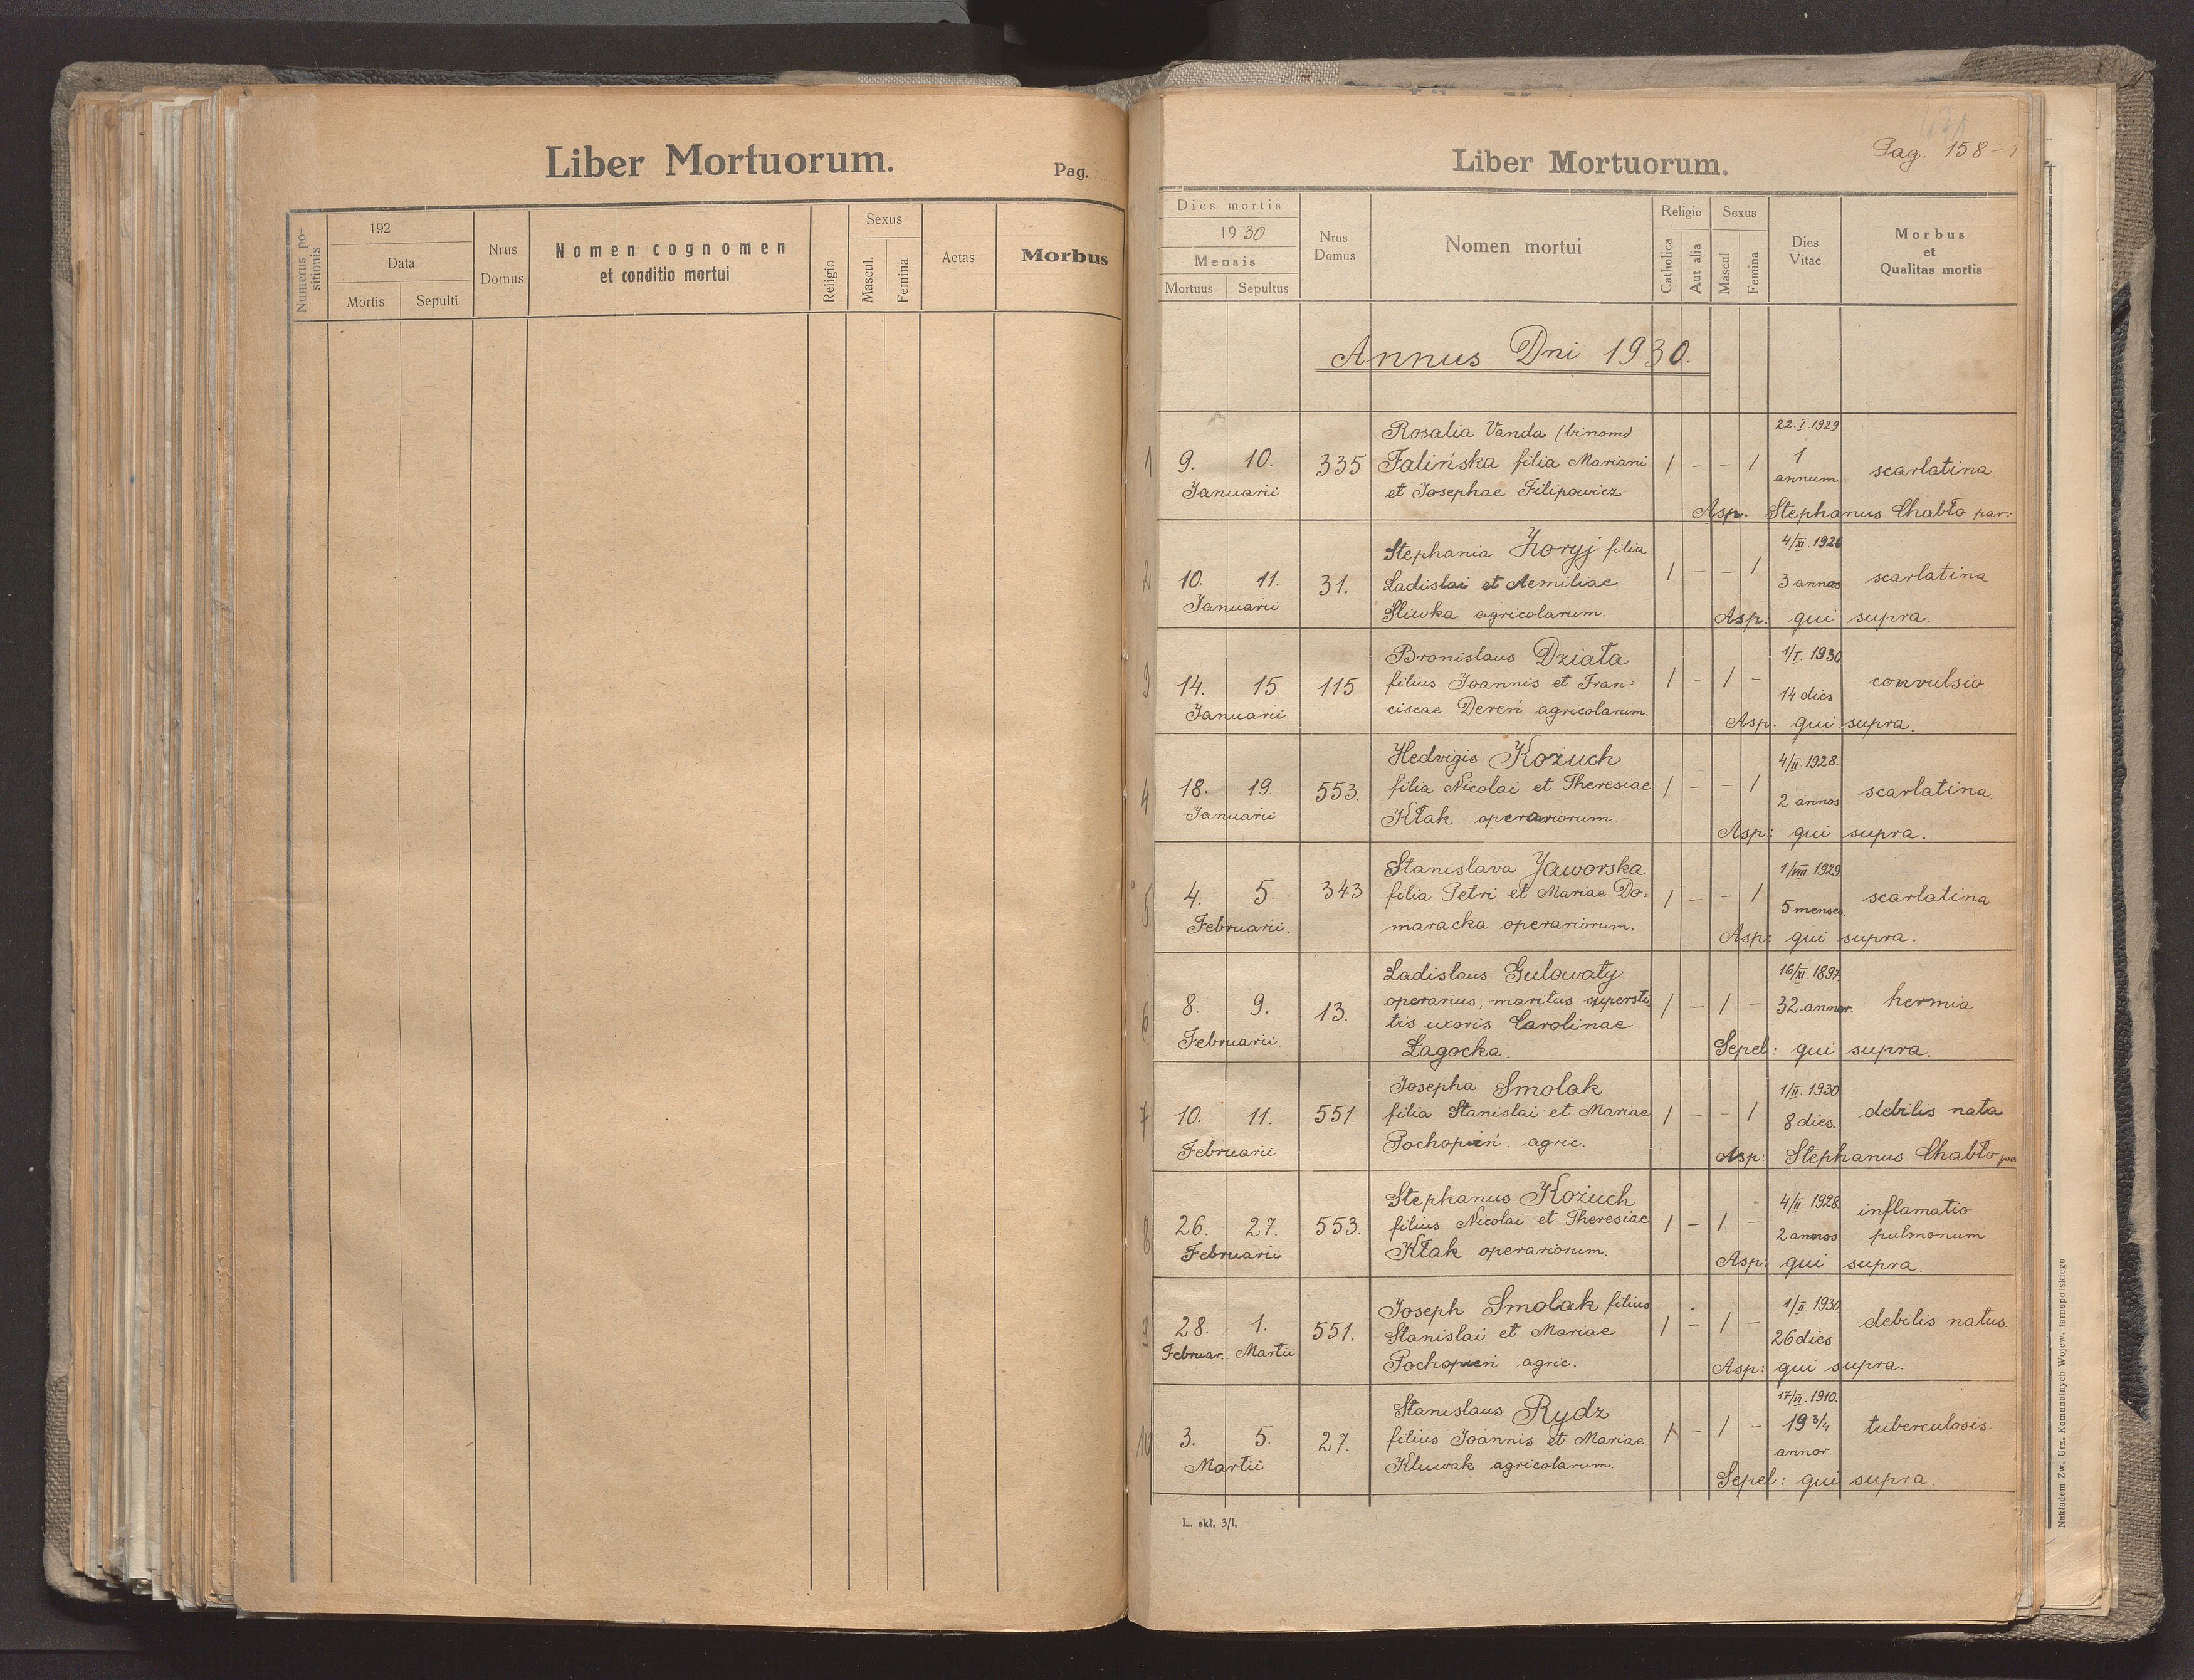 Liber Mortuorum.
Pag.
Numerus positionis
192
Data
Mortis
Sepulti
Nrus
Domus
Nomen cognomen
et conditio mortui
Religio
Sexus
Mascul.
Femina
Aetas
Morbus
Liber Mortuorum.
Pag. 158-
Dies mortis
1930
Mensis
Mortuus
Sepultus
Nrus
Domus
Nomen mortui
Religio
Catholica
Aut alia
Sexus
Mascul
Femina
Dies
Vitae
Morbus
et
Qualitas mortis
Annus Dni 1930.
22.I.1929
Rosalia Vanda (binom)
1 9. 10. 335 Falińska filia Mariani 1 - - 1 1 annum scarlatina
Januarii et Josephae Filipowicz
Asp. Stephanus Chabło par:
4/XI.1926
Stephania Zoryj filia
2 10. 11. 31. Ladislai et Aemiliae 1 - - 1 3 annos scarlatina
Januarii Śliwka agricolarum.
Asp: qui supra.
1/I.1930
Bronislaus Działa
3 14. 15. 115 filius Joannis et Fran= 1 - 1 - 14 dies convulsio
Januarii ciscae Dereń agricolarum.
Asp. qui supra.
4/II.1928.
Hedvigis Kożuch
4 18. 19. 553. filia Nicolai et Theresiae 1 - - 1 2 annos scarlatina.
Januarii Kłak operariorum.
Asp: qui supra.
1/VIII 1929.
Stanislava Jaworska
5 4. 5. 343 filia Petri et Mariae Do= 1 - - 1 5 menses. scarlatina
Februarii. maracka operariorum.
Asp: qui supra.
16/XI.1897.
Ladislaus Gulowaty
6 8. 9. 13. operarius, maritus supersti 1 - 1 - 32 annor. hermia
tis uxoris Carolinae
Februarii. Łagocka.
Sepel: qui supra.
1/II.1930
Josepha Smolak
7 10. 11. 551. filia Stanislai et Mariae 1 - - 1 8.dies. debilis nata
Februarii Pochopień. agric.
Asp: Stephanus Chabło pa
4/II.1928.
Stephanus Kożuch
8 26. 27. 553. filius Nicolai et Theresiae 1 - 1 - 2 annos inflamatio
pulmonum
Februarii Kłak operariorum.
Asp: qui supra.
1/II.1930
Joseph Smolak filius
9 28. 1. 551. Stanislai et Mariae 1 - 1 - 26 dies debilis natus.
Februar. Martii Pochopień agric.
Asp: qui supra.
17/VI.1910.
Stanislaus Rydz
10 3. 5. 27. filius Joannis et Mariae 1 - 1 - 19 3/4 annor. tuberculosis
Martii. Kluwak agricolarum.
Sepel: qui supra.
L. skł. 3/I.
Nakładem Zw. Urz. Komunalnych Wojew. tarnopolskiego